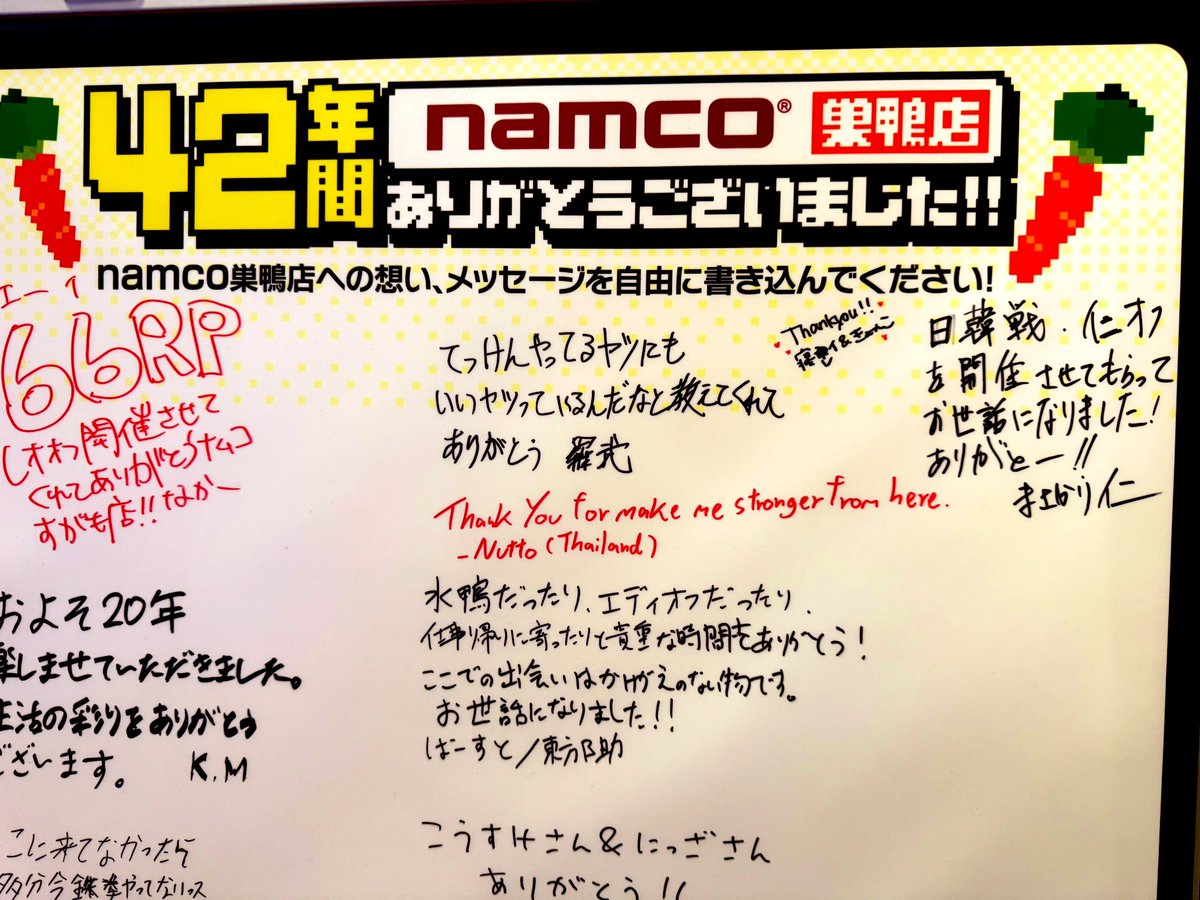 42年間
namco® 巣鴨店
ありがとうございました!!
namco巣鴨店への想い、メッセージを自由に書き込んでください!
エー
66RP
オオつ開催させて
くれてありがとうナムコ
すがも店!!なかー
てっけんやってるヤツにも
いいヤツっているんだなと教えてくれて
ありがとう
Thankyou!!
日韓戦・仁オフ
を開催させてもらって
お世話になりました!
ありがとー!!
まさかり仁
Thank You for make me stronger from here.
-Nutto (Thailand)
およそ20年
楽しませていただきました。
生活の彩りをありがとう
ございます。 K.M
水鴨だったり、エディオフだったり、
仕事帰りに寄ったりと貴重な時間をありがとう!
ここでの出会いはかけがえのない物です。
お世話になりました!!
ばーすと/東方不助
こに来てなかったら
多分今鉄拳やってないっス
こうすけさん&にっざさん
ありがとう!!